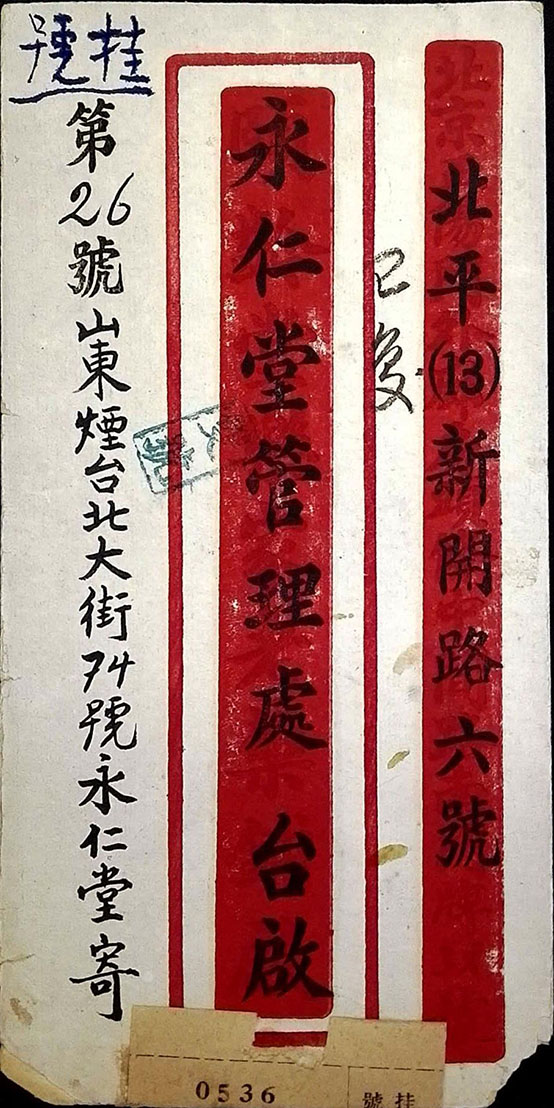 北平(13)新開路六號
已复
永仁堂管理處 台啟
掛號
第26號山東煙台北大街74號永仁堂寄
0536
掛號